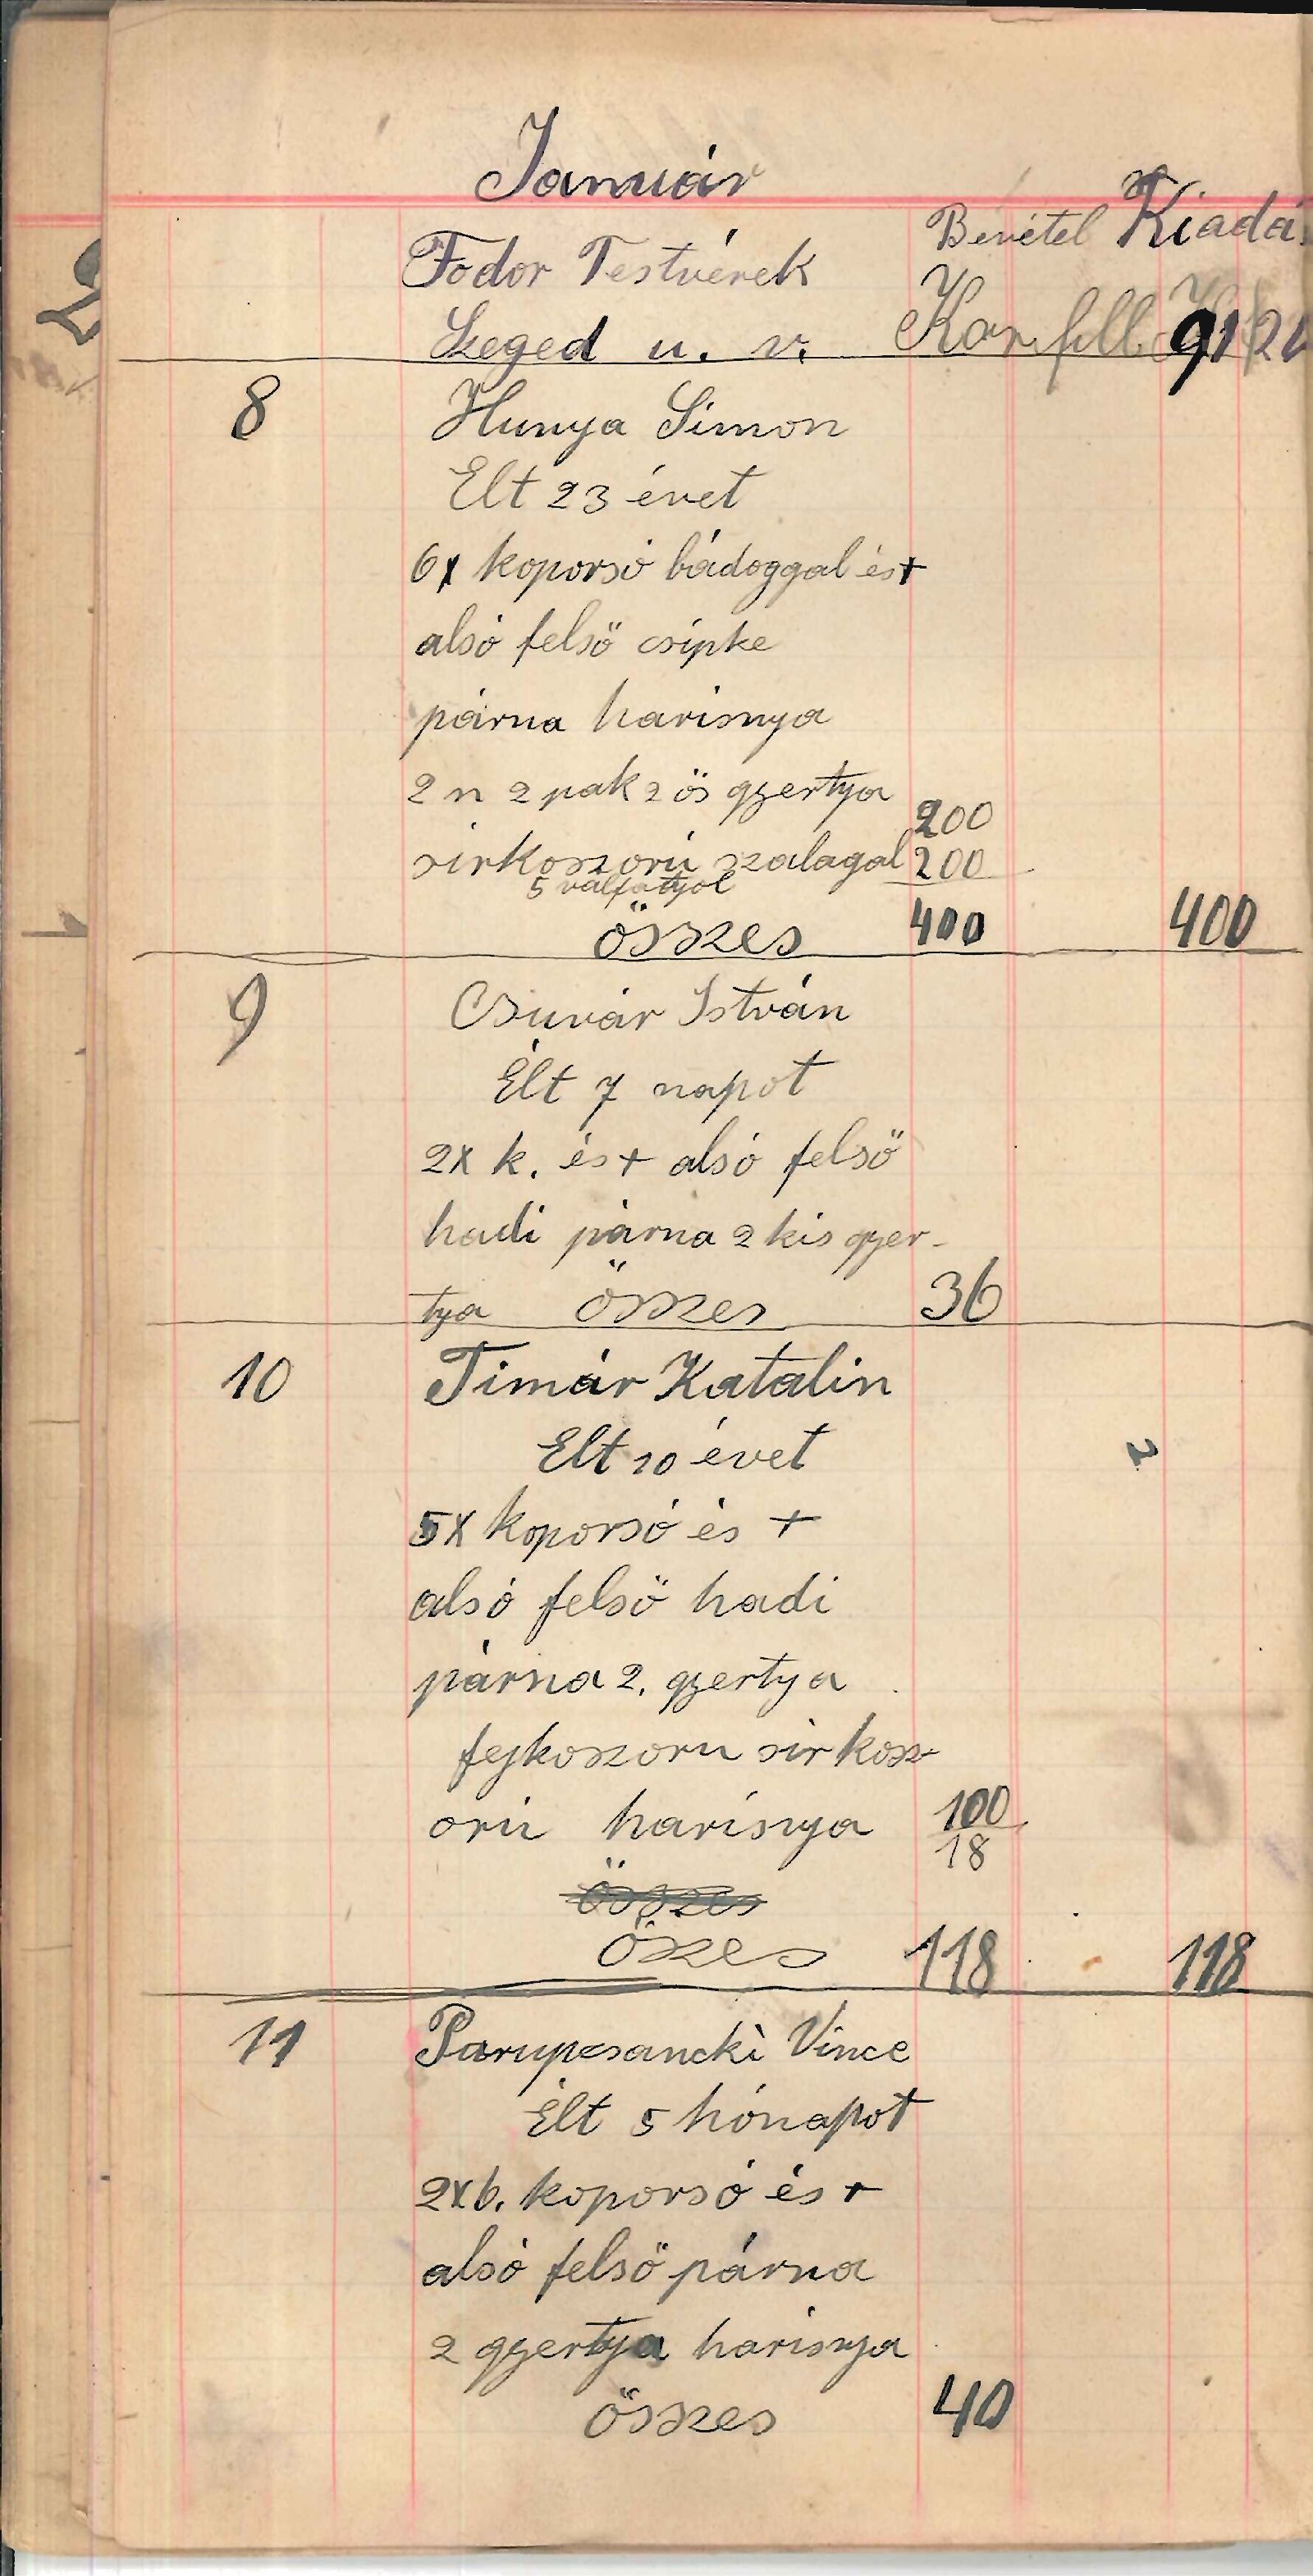 Január
Bevétel Kiadás
Fodor Testvérek
Szeged u. v. Kor. fill. 91 24
8 Hunya Simon
Elt 23 évet
6x koporsó bádoggal és +
alsó felső csipke
párna harisnya
2 n 2 pak 2 ős gyertya 200
sirkoszorú szalagal 200
5
összes 400 400
9 Csuvár István
Élt 7 napot
2x k. és + alsó felső
hadi párna 2 kis gyer-
tya összes 36
10 Timár Katalin
Elt 10 évet
2
5x koporsó és +
alsó felső hadi
párna 2. gyertya
fejkoszoru sirkosz-
orú harisnya 100
18
összes
öszes 118 118
11 Vince
Élt 5 hónapot
2x6. koporsó és +
alsó felső párna
2 gyertya harisnya
összes 40